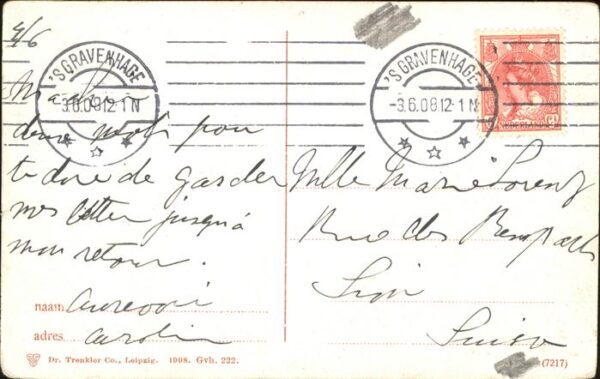 3/6
'S GRAVENHAGE
-3.6.08 12-1 N
'S GRAVENHAGE
-3.6.08 12-1 N
NEDERLAND
deux mots pour
te dire de garder
mes lettres jusqu'à
mon retour.
Mlle Marie Lorenz
Rue des Remparts
Sion
Suisse
naam
adres
Dr. Trenkler Co., Leipzig. 1908. Gvh. 222.
(7217)